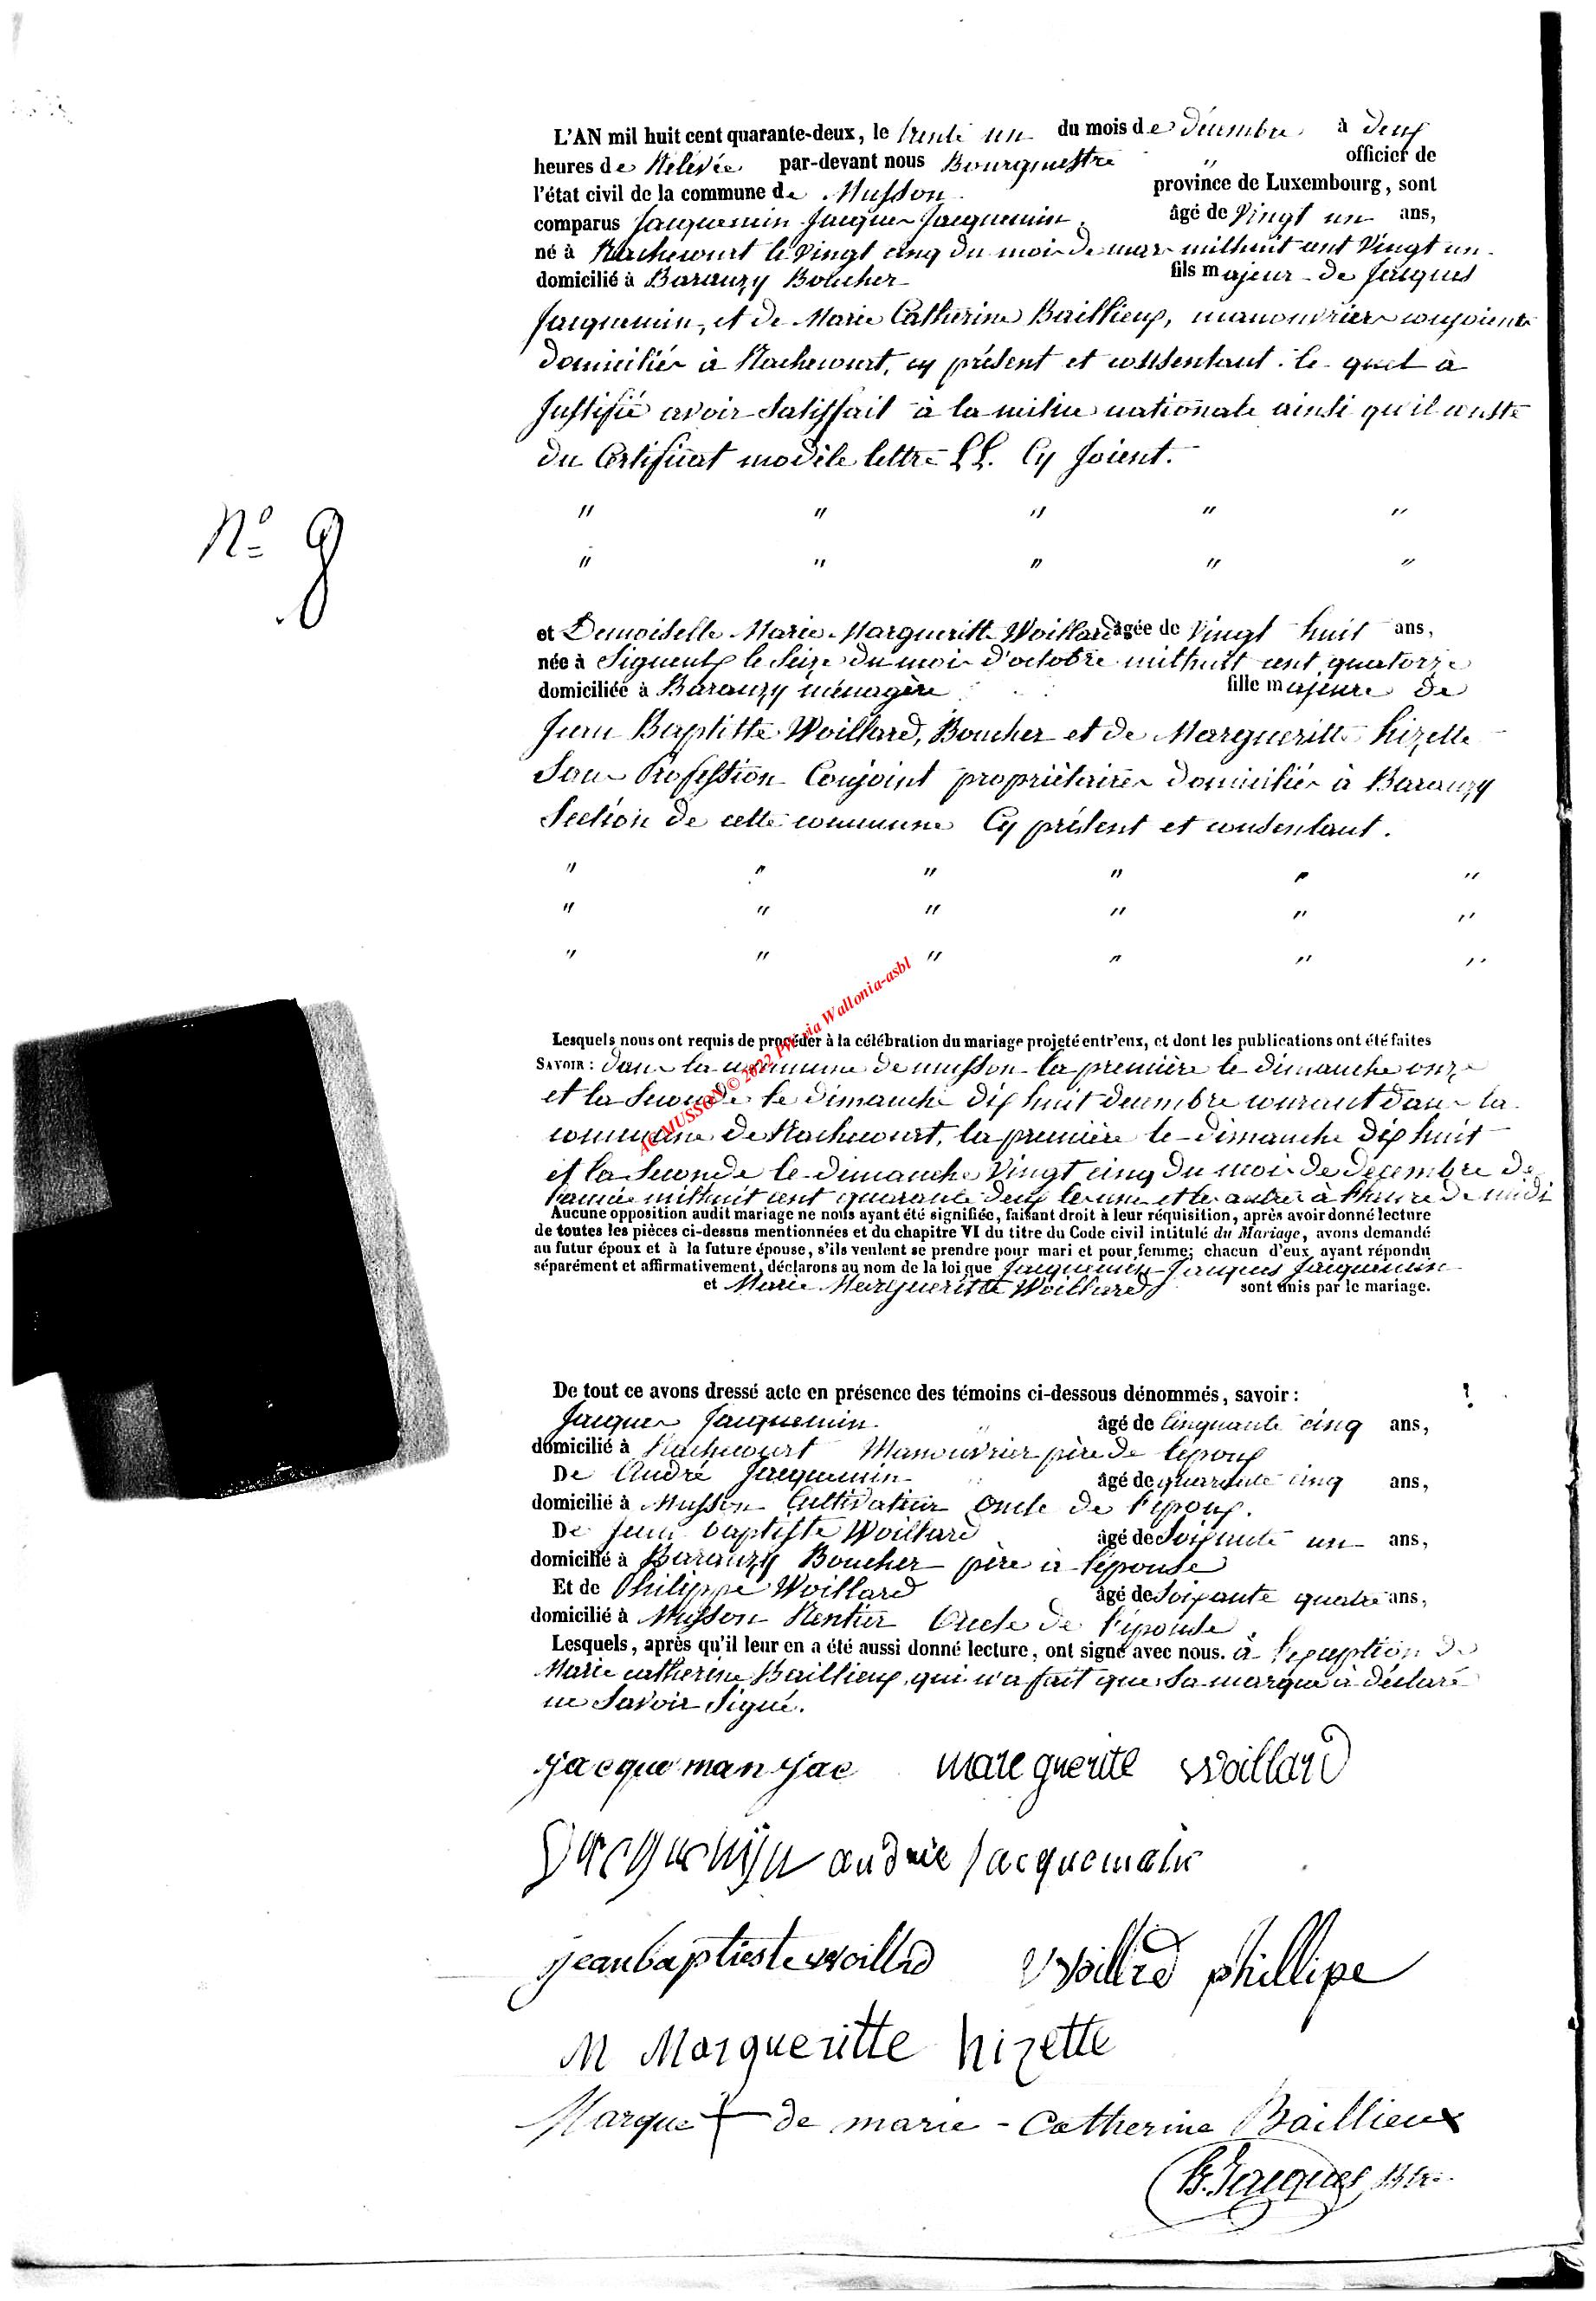 L'AN mil huit cent quarante-deux, le trente un du mois de décembre à deux
heures de Relevée par-devant nous Bourgmestre " officier de
l'état civil de la commune de Musson province de Luxembourg, sont
comparus Jacquemin Jacques Jacquemin. âgé de vingt un ans,
né à Rachecourt le vingt cinq du mois de mars mil huit cent vingt un.
domicilié à Baranzy Boucher fils majeur de Jacques
Jacquemin, et de Marie Catherine Baillieux, manouvriers conjoints
domiciliés à Rachecourt, cy présent et consentant. le quel à
Justifié avoir satisfait à la milice nationale ainsi qu'il conste
du Certificat modèle lettre LL. Cy Joient.
" " " " "
N° 9
" " " " "
et Demoiselle Marie Margueritte Woillard âgée de vingt huit ans,
née à Signeulx le seize du mois d'octobre mil huit cent quatorze
domiciliée à Baranzy ménagère fille majeure de
Jean Baptiste Woillard, Boucher et de Margueritte hizette
Sans Profession Conjoint propriètaires domiciliés à Baranzy
Section de cette commune Cy présent et consentant.
" " " " " "
" " " " " "
" " " " " "
AC MUSSON © 2022 PhWia Wallonia-asbl
Lesquels nous ont requis de procéder à la célébration du mariage projeté entr'eux, et dont les publications ont été faites
SAVOIR : dans la commune de musson la première le dimanche onze
et la seconde le dimanche dix huit decembre courant dans la
commune de Rachecourt, la première le dimanche dix huit
et la seconde le dimanche vingt cinq du mois de decembre de
l'année mil huit cent quarante deux les une et les autres à l'heure de midi
Aucune opposition audit mariage ne nous ayant été signifiée, faisant droit à leur réquisition, après avoir donné lecture
de toutes les pièces ci-dessus mentionnées et du chapitre VI du titre du Code civil intitulé du Mariage, avons demandé
au futur époux et à la future épouse, s'ils veulent se prendre pour mari et pour femme; chacun d'eux ayant répondu
séparément et affirmativement, déclarons au nom de la loi que Jacquemin Jacques Jacquemin
et Marie Margueritte Woillard sont unis par le mariage.
De tout ce avons dressé acte en présence des témoins ci-dessous dénommés, savoir :
Jacques Jacquemin. âgé de Cinquante cinq ans,
domicilié à Rachecourt Manouvrier père de l'époux
De André Jacquemin âgé de quarante cinq ans,
domicilié à Musson Cultivateur Oncle de l'époux.
De Jean baptiste Woillard âgé de Soixante un ans,
domicilié à Baranzy Boucher père à l'épouse
Et de Philippe Woillard âgé de Soixante quatre ans,
domicilié à Musson Rentier Oncle de l'épouse.
Lesquels, après qu'il leur en a été aussi donné lecture, ont signé avec nous. à l'exception de
Marie catherine Baillieux qui n'a fait que sa marque à déclaré
ne Savoir Signé.
jacqueman jac mareguerite woillard
Jacquemin andrie jacquemain
jean baptieste woillrd woillrd phillipe
M Margueritte hizette
Marque + de marie - Catherine Baillieux
B. Jacques Btre.